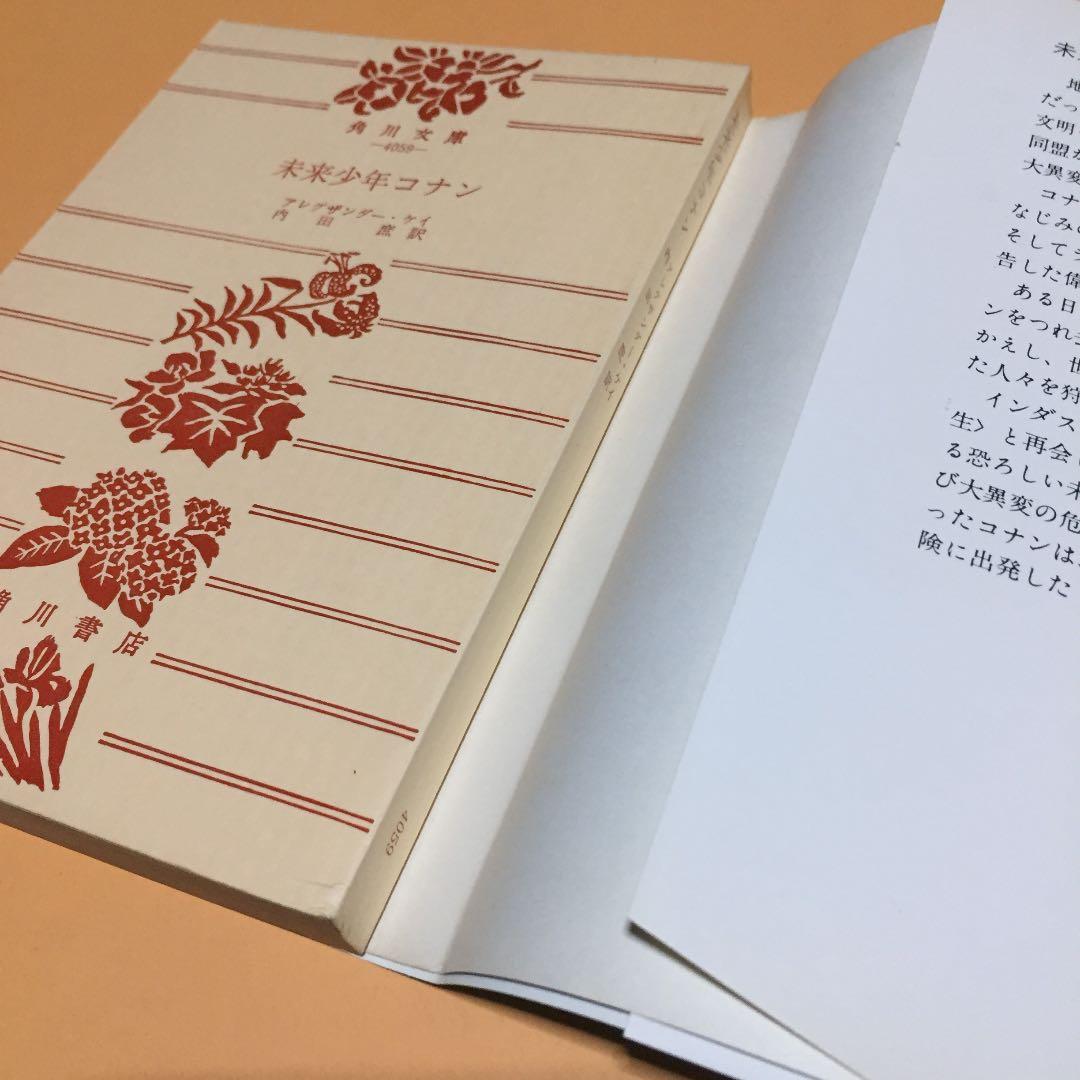 角川文庫
—4059—
未来少年コナン
アレグザンダー・ケイ
内田 庶訳
角川書店
4059
未
地
だっ
文明
同盟が
大異変
コナ
なじみの
そして
告した偉
ある日
ンをつれ
かえし、世
た人々を狩
インダス
生〉と再会
る恐ろしい未
び大異変の危
ったコナンは、
険に出発した